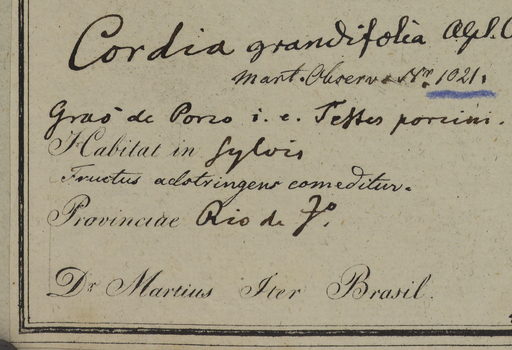 Cordia grandifolia Alph.
Mart. Observ. Nr. 1021.
Graõ de Porco i. e. Testes porcini.
Habitat in Sylvis
Fructus adstringens comeditur.
Provinciae Rio de Jº.
Dr Martius Iter Brasil.